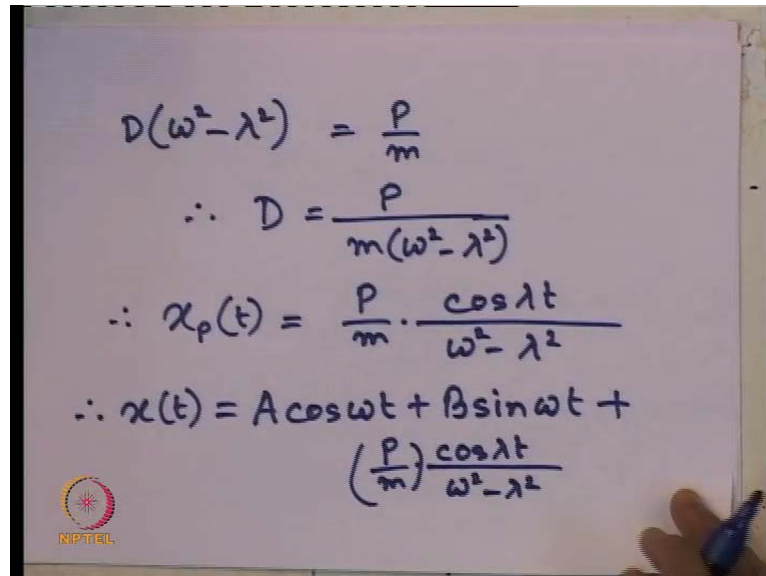 D(ω² − λ²) = P/m
∴ D = P/(m(ω² − λ²))
∴ x_p(t) = P/m · cos λt/(ω² − λ²)
∴ x(t) = A cos ωt + B sin ωt +
(P/m) cos λt/(ω² − λ²)
NPTEL